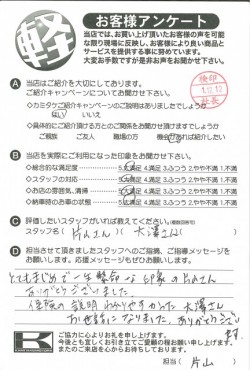 軽
お客様アンケート
当店では、お買い上げ頂いたお客様の声を可能
な限り現場に反映し、お客様により良い商品と
サービスを提供する事に努めています。
大変お手数ですが是非お声をお聞かせ下さい。
検印
社長
A 当店はご紹介を大切にしております。
ご紹介キャンペーンについてお聞かせ下さい。
◇カミタケご紹介キャンペーンのご説明はありましたでしょうか
はい いいえ
◇具体的にご紹介頂ける方とのご関係をお聞かせ頂けますでしょうか
家族 友人 ご近所 職場の方 機会あれば紹介したい
B 当店を実際にご利用になられた印象をお聞かせ下さい。
◇総合的な満足度 5.大満足 4.満足 3.ふつう 2.やや不満 1.不満
◇スタッフの対応 5.大満足 4.満足 3.ふつう 2.やや不満 1.不満
◇お店の雰囲気、清掃 5.大満足 4.満足 3.ふつう 2.やや不満 1.不満
◇納車時のお車の状態 5.大満足 4.満足 3.ふつう 2.やや不満 1.不満
C 評価したいスタッフがいれば教えてください。(複数回答可)
スタッフ名( 片山さん )( 大澤さん )
D 担当させて頂きましたスタッフへのご指摘、ご応援メッセージを
お願いします。応援メッセージもぜひお願いします。
とてもまじめで一生懸命な印象の片山さん
ありがとうございました
保険の説明 わかりやすかった 大澤さん
お世話になりました。ありがとうございます。
ご協力に心よりお礼を申し上げます。
今後とも宜しくお引き立てご愛顧の程お願い申し上げます。
またのご来店を心からお待ちしております。
担当( 片山 )